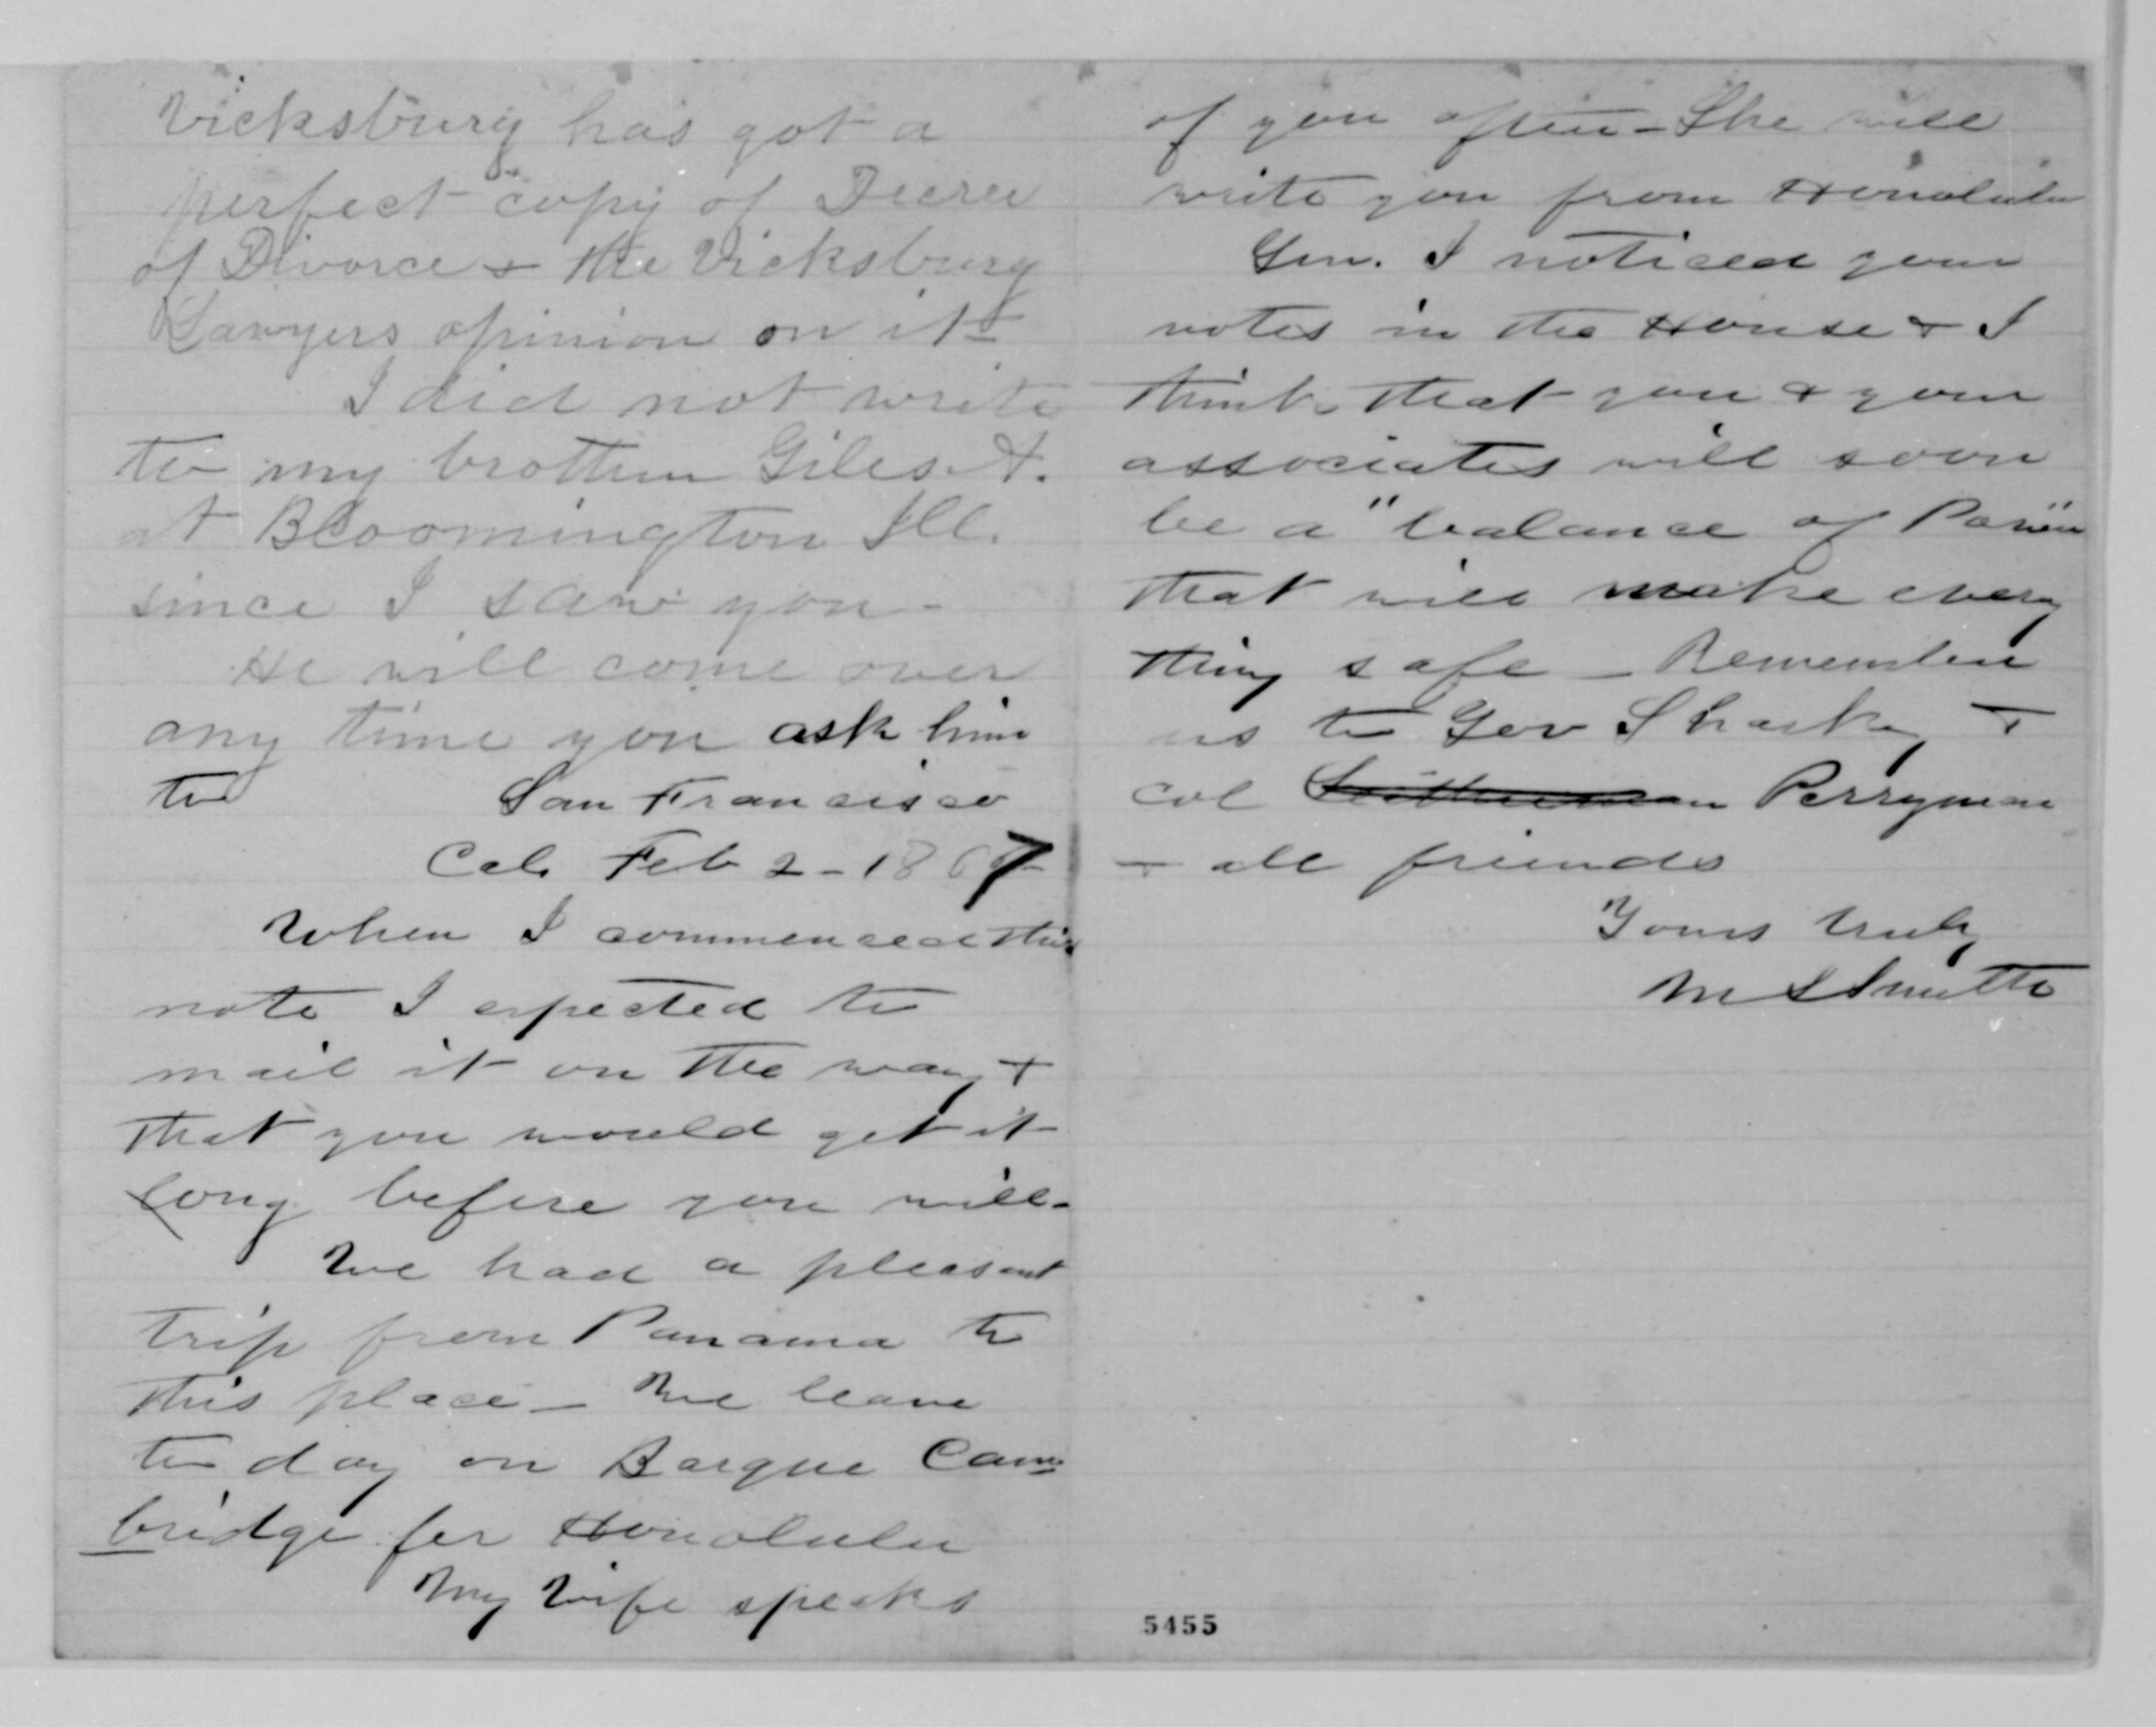 Vicksburg has got a
perfect copy of Decree
of Divorce & the Vicksburg
Lawyers opinion on it-
I did not write
to my brother Giles A.
at Bloomington Ill.
since I saw you -
He will come over
any time you ask him
to
San Francisco
Cal. Feb 2 - 1867
When I commenced this
note I expected to
mail it on the way &
that you would get it
long before you will -
We had a pleasant
trip from Panama to
this place - We leave
to day on Barque Cam
bridge for Honolulu
My wife speaks
of you often - She will
write you from Honolulu
Gen. I noticed your
votes in the House & I
think that you & your
associates will soon
be a "balance of Power"
that will make every
thing safe - Remember
us to Gov Sharkey &
Col Perryman
& all friends
Yours truly
M S Smith
5455